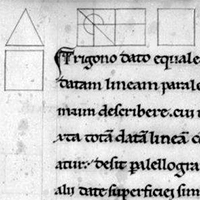 Trigono dato equale
datam lineam paralel
maum describere. cui
xta totā datā lineā c
atur. desit paralellogra
alii date superficiei sim